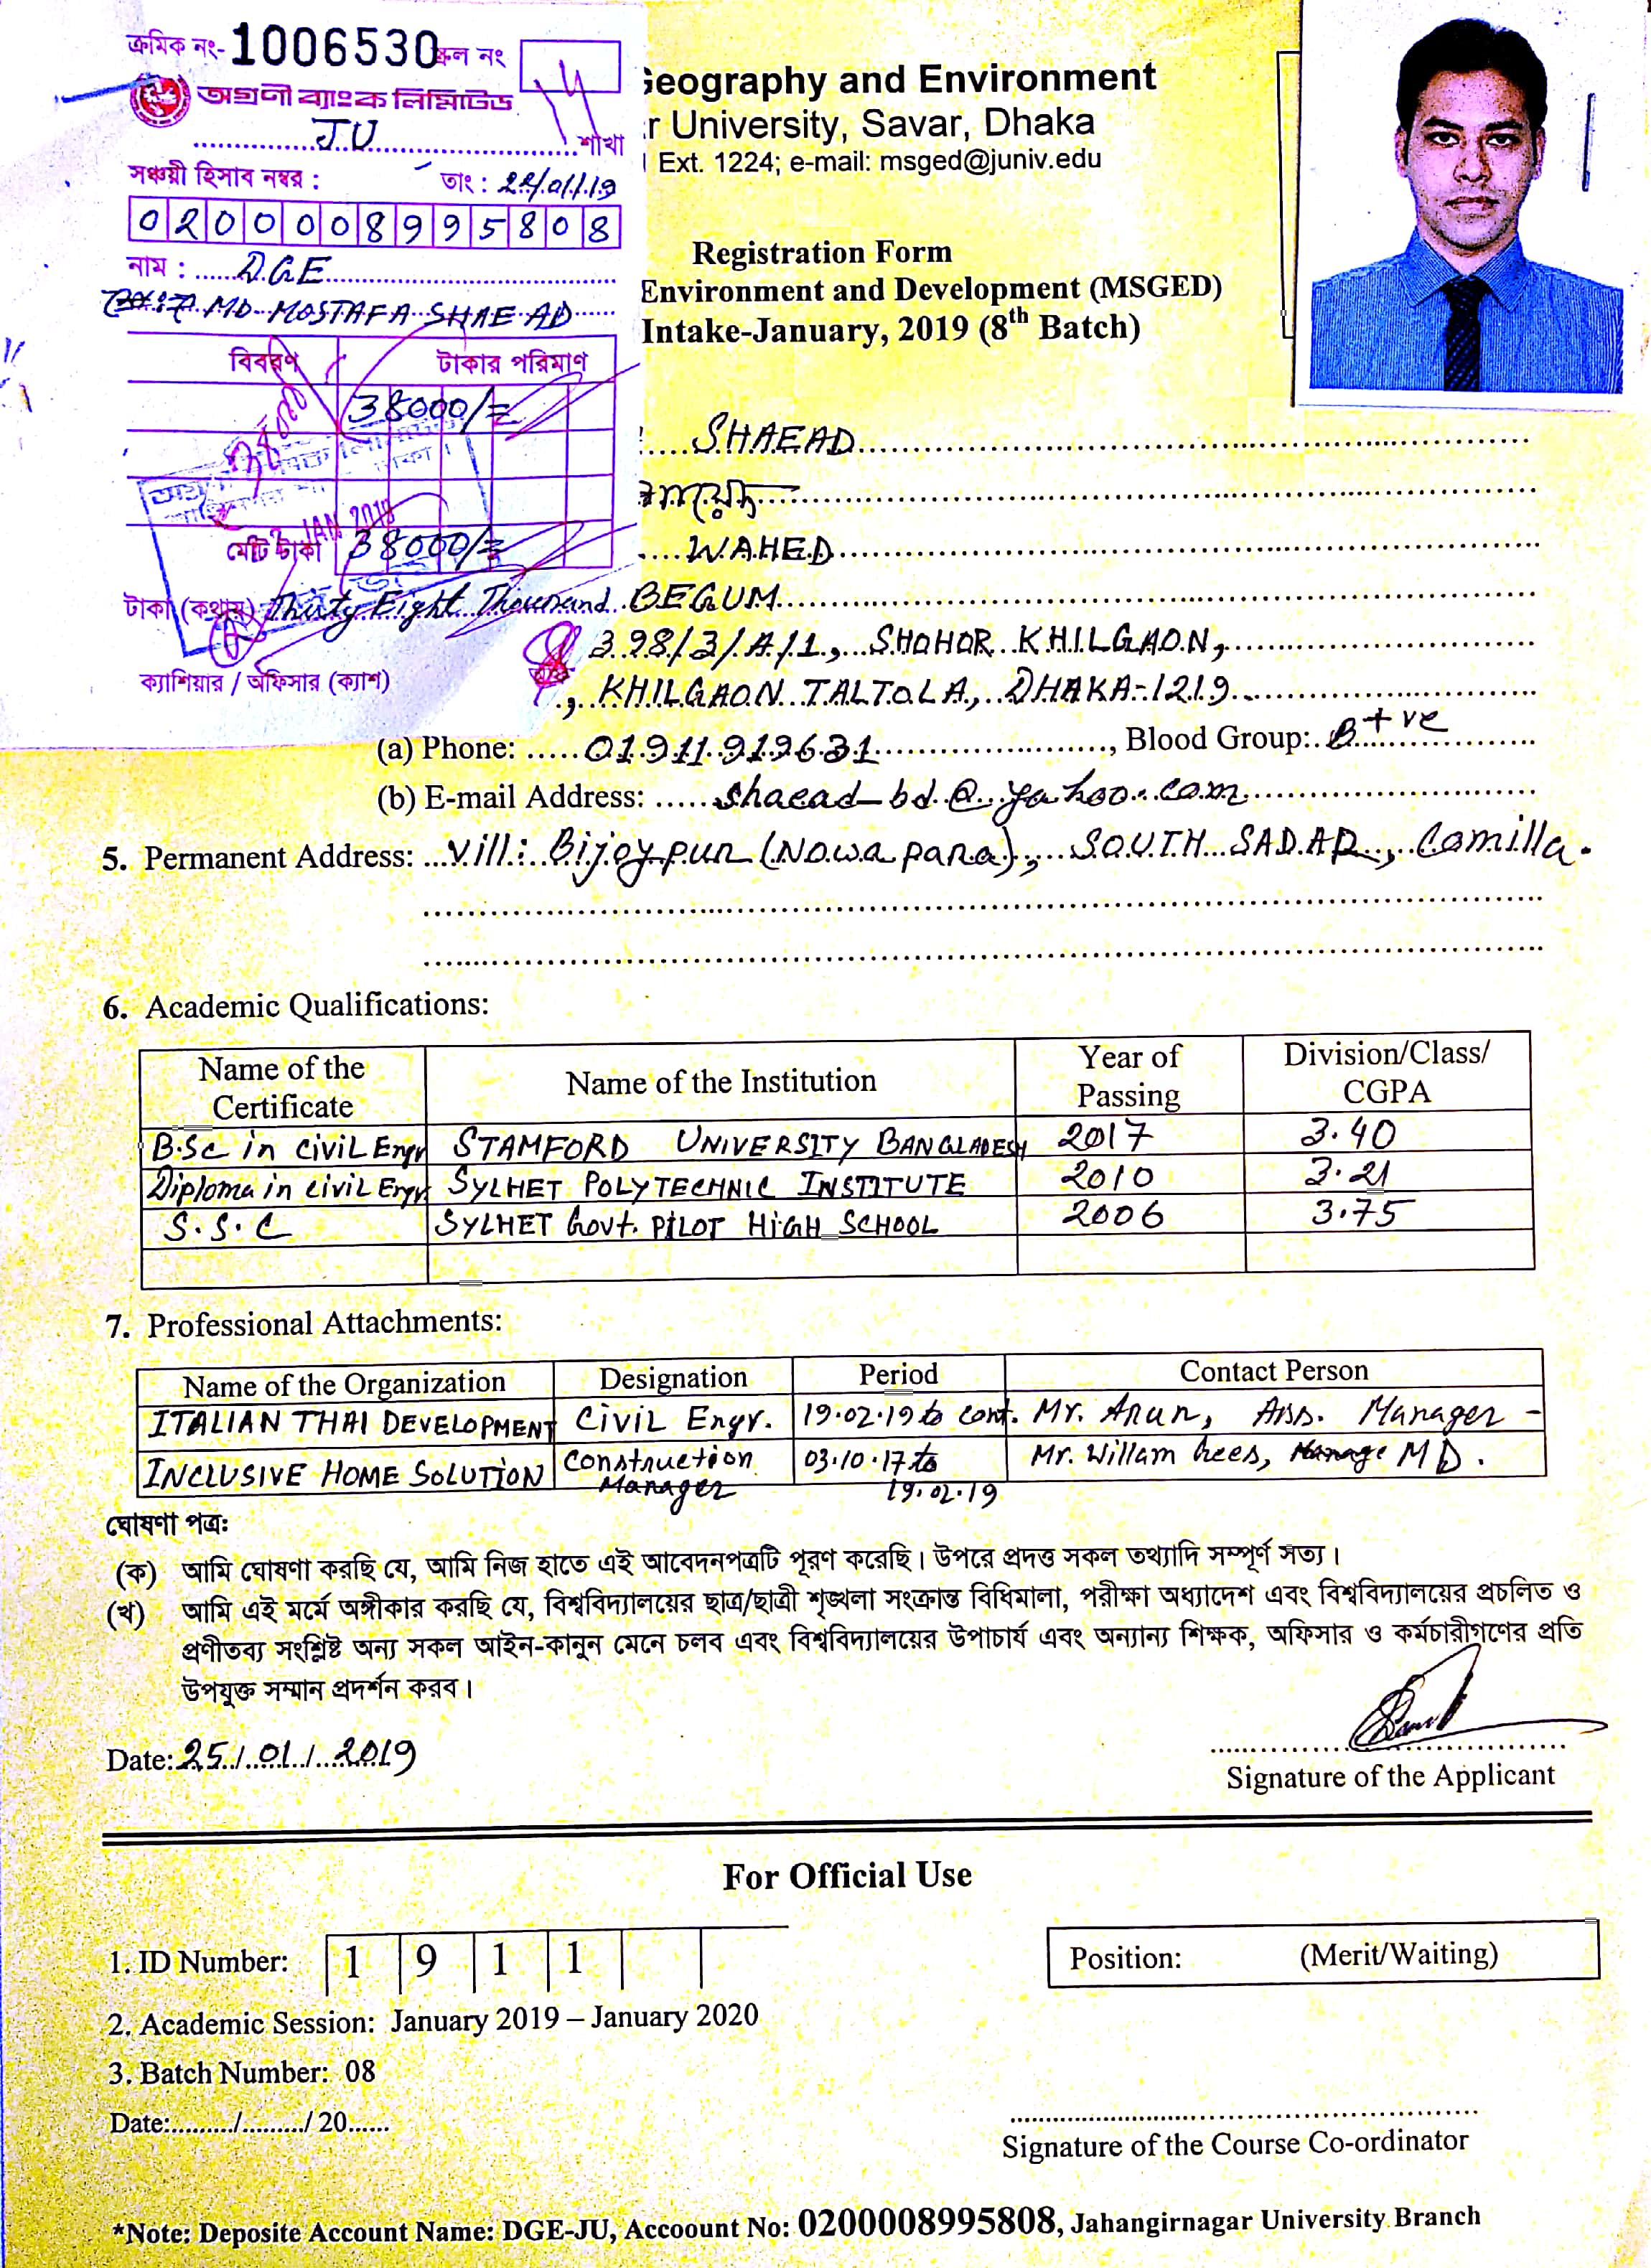 ক্রমিক নং- 1006530 স্ক্রল নং
অগ্রণী ব্যাংক লিমিটেড
JU শাখা
সঞ্চয়ী হিসাব নম্বর : তাং : 22/01/19
0200008995808
নাম : DGE
MD. MOSTAFA SHAEAD
বিবরণ টাকার পরিমাণ
38000/=
মোট টাকা 38000/=
টাকা (কথায়) Thirty Eight Thousand
ক্যাশিয়ার / অফিসার (ক্যাশ)
Geography and Environment
r University, Savar, Dhaka
Ext. 1224; e-mail: msged@juniv.edu
Registration Form
Environment and Development (MSGED)
Intake-January, 2019 (8th Batch)
SHAEAD
WAHED
BEGUM
398/3/A/1, SHOHOR KHILGAON,
, KHILGAON TALTOLA, DHAKA-1219.
(a) Phone: 01911919631, Blood Group: B+ve
(b) E-mail Address: shaead_bd@yahoo.com
5. Permanent Address: Vill: Bijoypur (Nowapara), SOUTH SADAR, Comilla.
6. Academic Qualifications:
Name of the Certificate Name of the Institution Year of Passing Division/Class/ CGPA
B.Sc in CiViL Engr STAMFORD UNIVERSITY BANGLADESH 2017 3.40
Diploma in CiViL Engr. SYLHET POLYTECHNIC INSTITUTE 2010 3.21
S.S.C SYLHET Govt. PILOT HIGH SCHOOL 2006 3.75
7. Professional Attachments:
Name of the Organization Designation Period Contact Person
ITALIAN THAI DEVELOPMENT CIVIL Engr. 19.02.19 to cont. Mr. Arun, Ass. Manager -
INCLUSIVE HOME SOLUTION Construction Manager 03.10.17 to 19.02.19 Mr. Willam hees, MD.
ঘোষণা পত্র:
(ক) আমি ঘোষণা করছি যে, আমি নিজ হাতে এই আবেদনপত্রটি পূরণ করেছি। উপরে প্রদত্ত সকল তথ্যাদি সম্পূর্ণ সত্য।
(খ) আমি এই মর্মে অঙ্গীকার করছি যে, বিশ্ববিদ্যালয়ের ছাত্র/ছাত্রী শৃঙ্খলা সংক্রান্ত বিধিমালা, পরীক্ষা অধ্যাদেশ এবং বিশ্ববিদ্যালয়ের প্রচলিত ও
প্রণীতব্য সংশ্লিষ্ট অন্য সকল আইন-কানুন মেনে চলব এবং বিশ্ববিদ্যালয়ের উপাচার্য এবং অন্যান্য শিক্ষক, অফিসার ও কর্মচারীগণের প্রতি
উপযুক্ত সম্মান প্রদর্শন করব।
Date: 25/01/2019
Signature of the Applicant
For Official Use
1. ID Number: 1 9 1 1
Position: (Merit/Waiting)
2. Academic Session: January 2019 – January 2020
3. Batch Number: 08
Date:........./........./ 20......
Signature of the Course Co-ordinator
*Note: Deposite Account Name: DGE-JU, Accoount No: 0200008995808, Jahangirnagar University Branch